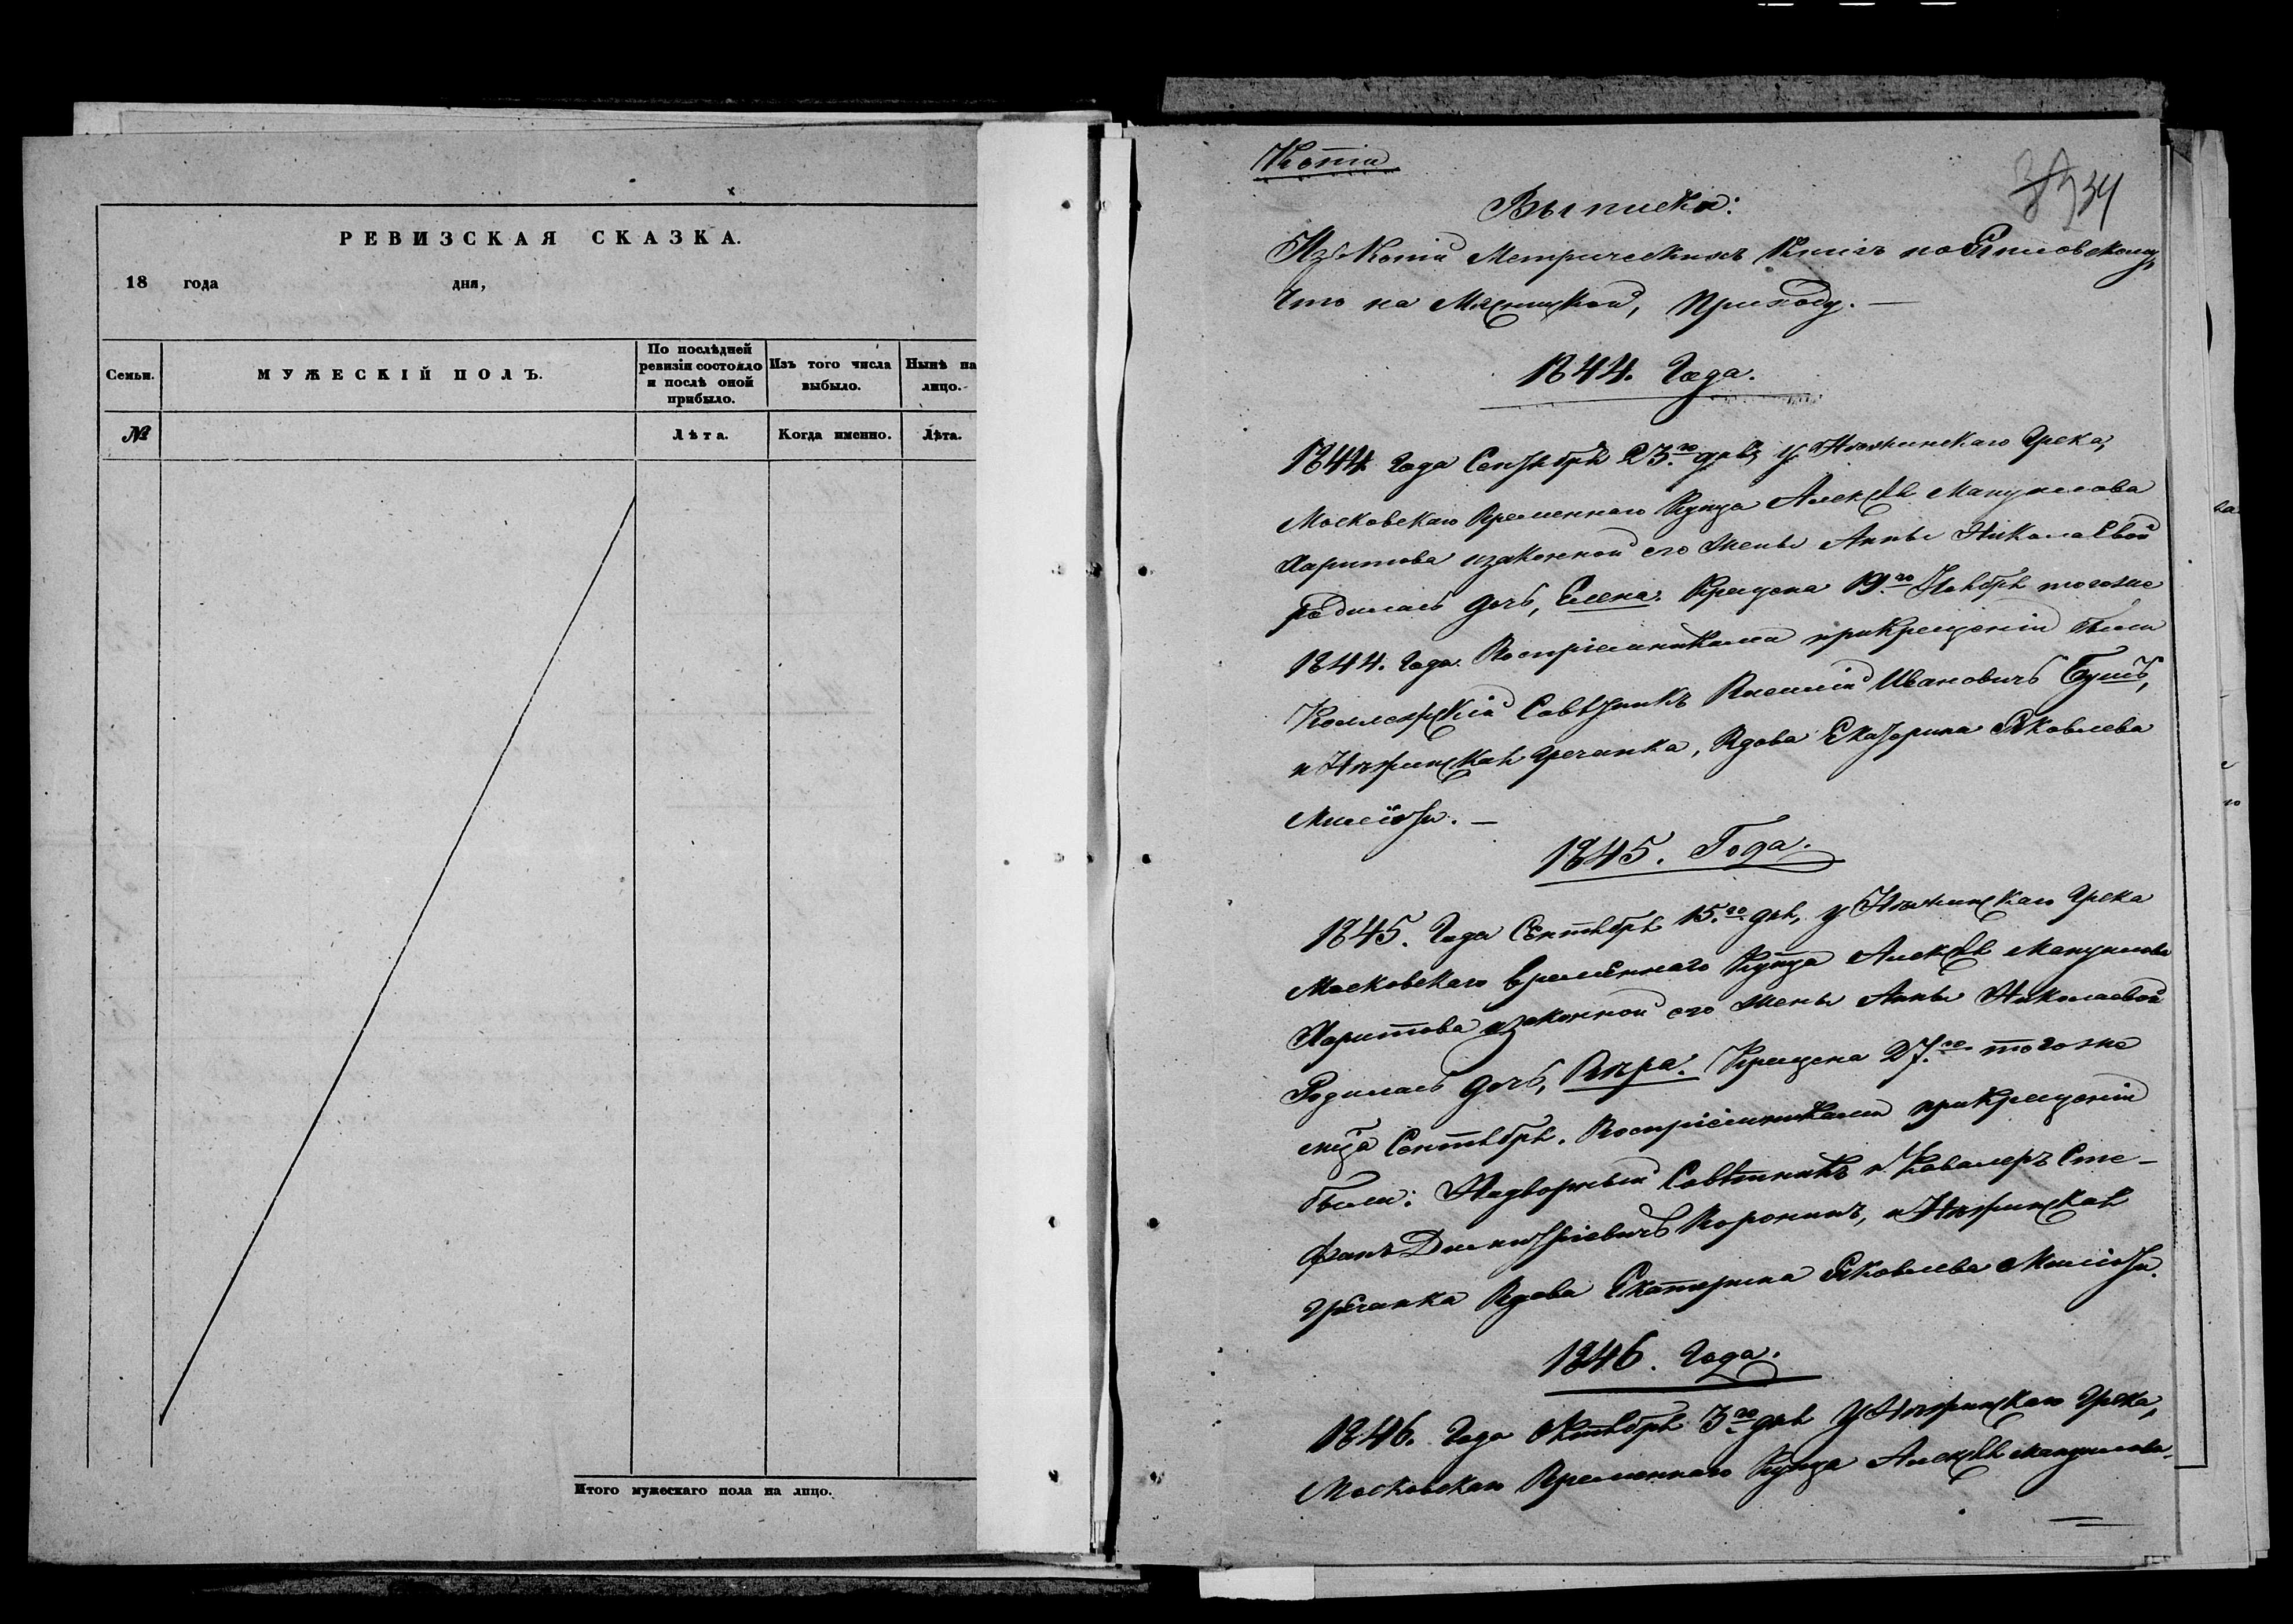 РЕВИЗСКАЯ СКАЗКА.
18 года дня,
Семьи.
МУЖЕСКІЙ ПОЛЪ.
По послѣдней
ревизіи состояло
и послѣ оной
прибыло.
Изъ того числа
выбыло.
Нынѣ на
лицо.
№
Лѣта.
Когда именно.
Лѣта.
Итого мужескаго пола на лицо.
Копія
34
Выписка:
Изъ Копіи Метрическихъ Книгъ по
что на Мясницкой, приходу. —
1844. Года.
1844 Года Сентября 23.го дня, у Нѣжинскаго Грека,
Московскаго Временнаго Купца Алексѣя Мануилова
Харитова и законной его жены Анны Николаевой
родилась дочь, Елена. Крещена 19.го Ноября тогоже
1844. Года. Воспріемниками при крещеніи были
Коллежскій Совѣтникъ Василій Ивановичъ
и Нѣжинская Гречанка, Вдова Екатерина Яковлева
1845. Года.
1845. Года Сентября 15.го дня, у Нѣжинскаго Грека
Московскаго временнаго Купца Алексѣя Мануилова
Харитова и законной его жены Анны Николаевой
Родилась дочь, Вѣра. Крещена 27.го тогоже
мца Сентября. Воспріемниками при крещеніи
были: Надворный Совѣтникъ и Кавалеръ Сте-
фанъ Димитріевичъ Воронинъ, и Нѣжинская
Гречанка Вдова Екатерина Яковлева
1846. Года.
1846. Года Октября 3.го дня у Нѣжинскаго Грека,
Московскаго Временнаго Купца Алексѣя Мануилова